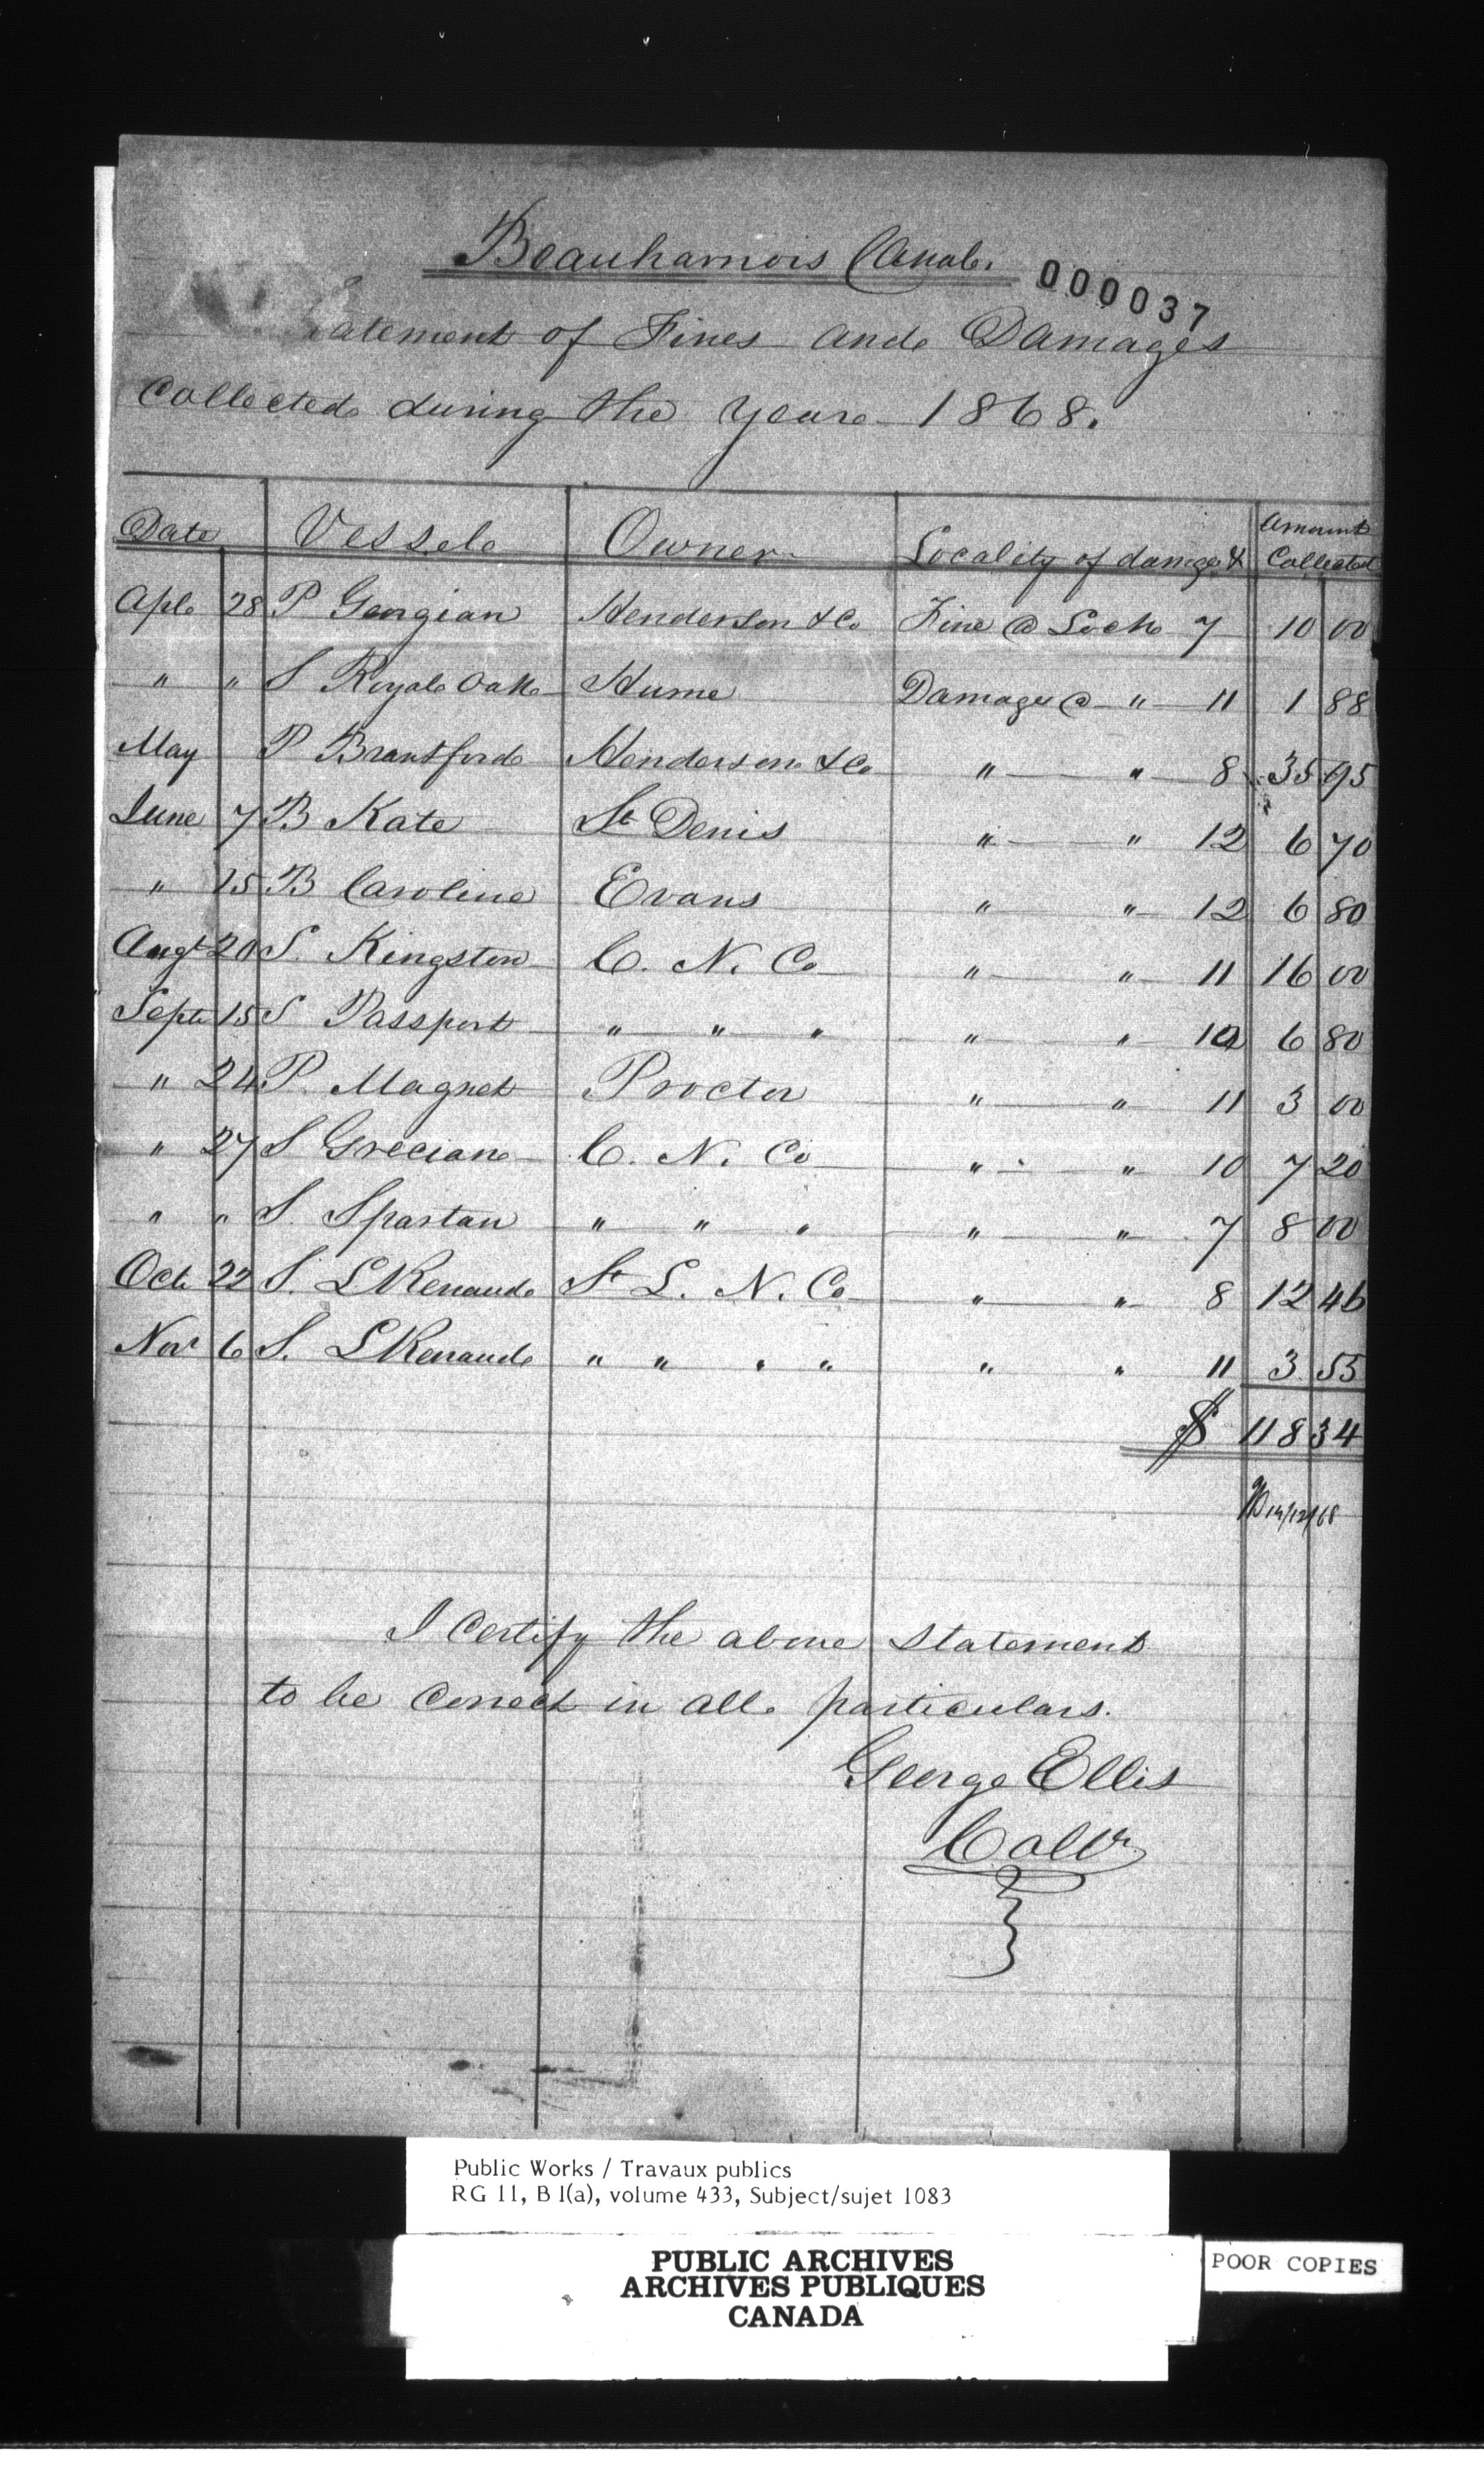 Beauharnois Canal.
000037
Statement of Fines and Damages
Collected during the Year 1868.
Date Vessel Owner Locality of damage & Amount Collected
Apl 28 P Georgian Henderson & Co Fine @ Lock 7 10 00
" " S Royal Oak Hume Damage @ " 11 1 88
May P Brantford Henderson & Co " " 8 35 95
June 7 B Kate St Denis " " 12 6 70
" 15 B Caroline Evans " " 12 6 80
Augt 20 S. Kingston C. N. Co " " 11 16 00
Sept 15 S Passport " " " " " 6 80
" 24 P. Magnet Proctor " " 11 3 00
" 27 S Grecian C. N. Co " " 10 7 20
" " S. Spartan " " " " " 7 8 00
Oct 22 S. L Renaud St L. N. Co " " 8 12 46
Nov 6 S. L Renaud " " " " " " 11 3 55
$ 118 34
14/12/68
I Certify the above Statement
to be Correct in all particulars.
George Ellis
Collr
Public Works / Travaux publics
RG 11, B 1(a), volume 433, Subject/sujet 1083
PUBLIC ARCHIVES
ARCHIVES PUBLIQUES
CANADA
POOR COPIES